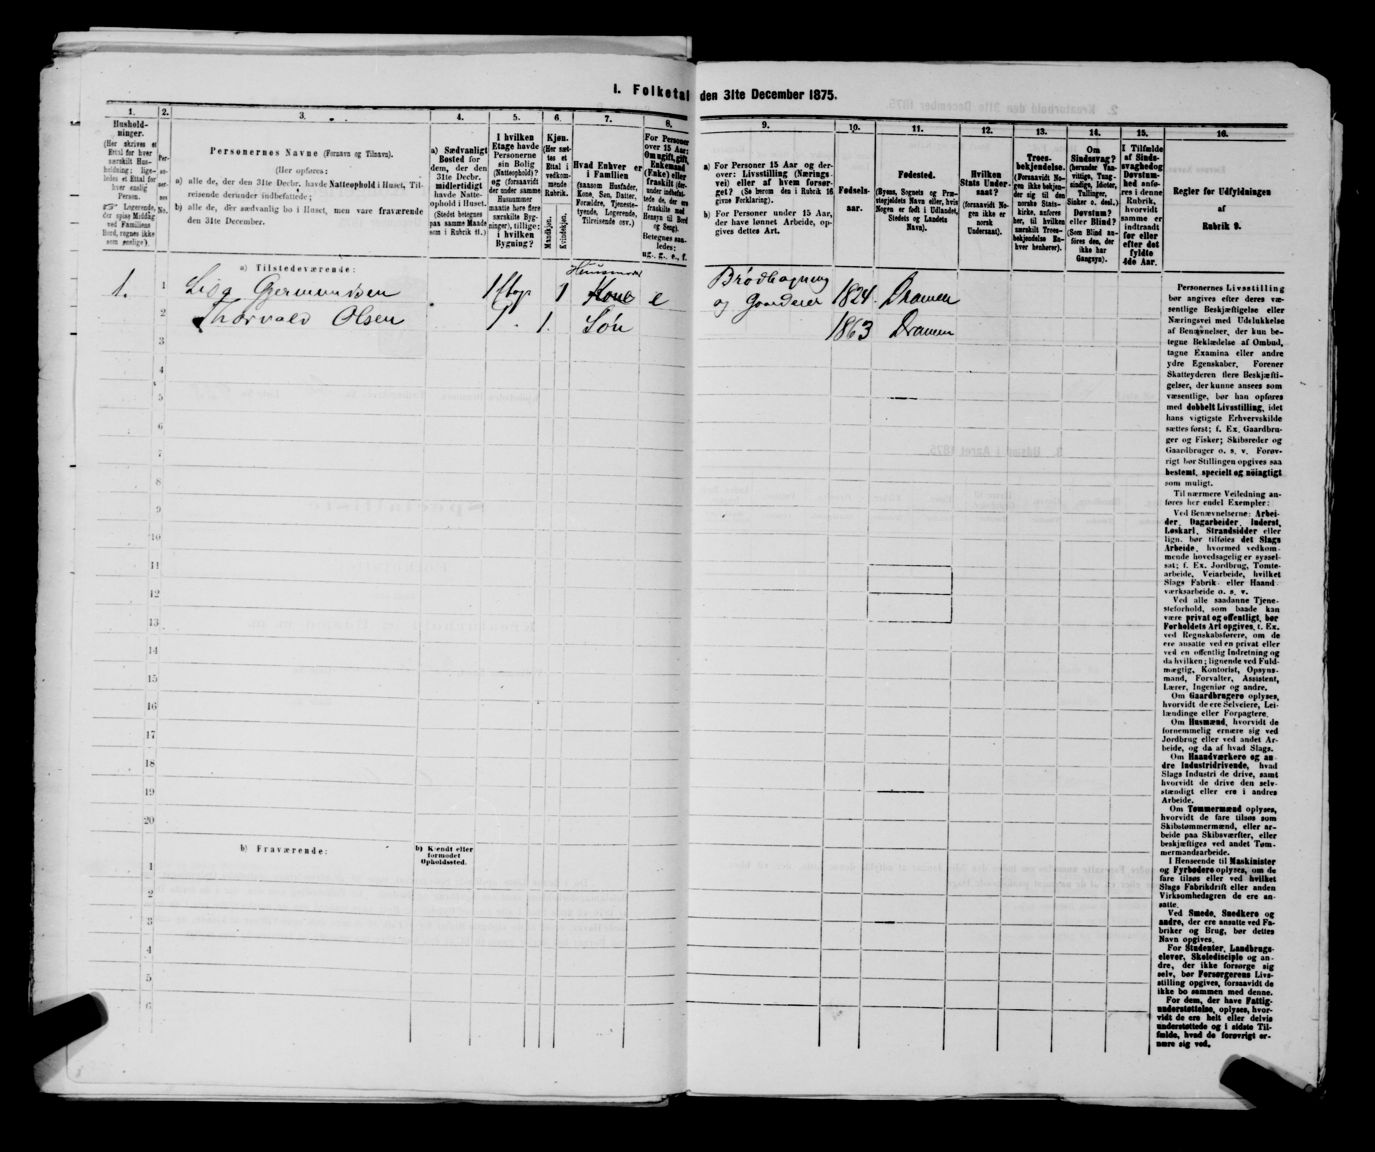 1. Folketal den 31te December 1875.
1.
Hushold-
ninger.
(Her skrives et
Ettal for hver
særskilt Hus-
holdning; lige-
ledes et Ettal for
hver enslig
Person.
☞ Logerende,
der spise Middag
ved Familiens
Bord, regnes ikke
som enslige).
2.
Per-
so-
ner-
nes
No.
3.
Personernes Navne (Fornavn og Tilnavn).
(Her opføres:
a) alle de, der den 31te Decbr. havde Natteophold i Huset, Til-
reisende derunder indbefattede;
b) alle de, der sædvanlig bo i Huset, men vare fraværende
den 31te December.
4.
a) Sædvanligt
Bosted for
dem, der den
31te Decbr.
midlertidigt
havde Natte-
ophold i Huset.
(Stedet betegnes
paa samme Maade
som i Rubrik 11.)
5.
I hvilken
Etage havde
Personerne
sin Bolig
(Natteophold)?
og (forsaavidt
der under samme
Husnummer
maatte høre flere
særskilte Byg-
ninger), tillige:
i hvilken
Bygning?
6.
Kjøn.
(Her sæt-
tes et
Ettal i
vedkom-
mende
Rubrik.
Mandkjøn.
Kvindekjøn.
7.
Hvad Enhver er
i Familien
(saasom Husfader,
Kone, Søn, Datter,
Forældre, Tjeneste-
tyende, Logerende,
Tilreisende osv.)
8.
For Personer
over 15 Aar:
Om ugift, gift,
Enkemand
(Enke) eller
fraskilt (der-
under indbefat-
tede de, der ere
fraskilte med
Hensyn til Bord
og Seng).
Betegnes saa-
ledes:
ug., g., e., f.
9.
a) For Personer 15 Aar og der-
over: Livsstilling (Nærings-
vei) eller af hvem forsør-
get? (Se herom den i Rubrik 16
givne Forklaring).
b) For Personer under 15 Aar,
der have lønnet Arbeide, op-
gives dettes Art.
10.
Fødsels-
aar.
11.
Fødested.
(Byens, Sognets og Præ-
stegjeldets Navn eller, hvis
Nogen er født i Udlandet,
Stedets og Landets
Navn).
12.
Hvilken
Stats Under-
saat?
(forsaavidt No-
gen ikke er
norsk
Undersaat).
13.
Troes-
bekjendelse.
(Forsaavidt No-
gen ikke bekjen-
der sig til den
norske Stats-
kirke, anføres
her, til hvilken
Troesbekjendelse En-
hver henhører).
14.
Om
Sindssvag?
(herunder Van-
vittige, Tung-
sindige, Idioter,
Tullinger,
Sinker o. desl.)
Døvstum?
eller Blind?
(Som Blind an-
føres den, der
ikke har
Gangsyn).
15.
I Tilfælde
af Sinds-
svaghed og
Døvstum-
hed anfø-
res i denne
Rubrik,
hvorvidt
samme er
indtraadt
før eller
efter det
fyldte
4de Aar.
16.
Regler for Udfyldningen
af
Rubrik 9.
a) Tilstedeværende:
1. 1 Lisa Gjermundsen 1 Etag 1 Huusmoder Kone e Brödbagning og Gaardeier 1824. Dramen
2 Thorvald Olsen 1. 1. Søn 1863 Dramen
3
4
5
6
7
8
9
10
11
12
13
14
15
16
17
18
19
20
b) Fraværende:
b) Kjendt eller
formodet
Opholdssted.
1
2
3
4
5
6
Personernes Livsstilling
bør angives efter deres væ-
sentlige Beskjæftigelse eller
Næringsvei med Udelukkelse
af Benævnelser, der kun be-
tegne Beklædelse af Ombud,
tagne Examina eller andre
ydre Egenskaber. Forener
Skatteyderen flere Beskjæfti-
gelser, der kunne ansees som
væsentlige, bør han opføres
med dobbelt Livsstilling, idet
hans vigtigste Erhvervskilde
sættes først; f. Ex. Gaardbru-
ger og Fisker; Skibsreder og
Gaardbruger o. s. v. Forøv-
rigt bør Stillingen opgives saa
bestemt, specielt og nöiagtigt
som muligt.
Til nærmere Veiledning an-
føres her endel Exempler:
Ved Benævnelserne: Arbei-
der, Dagarbeider, Inderst,
Løskarl, Strandsidder eller
lign. bør tilføies det Slags
Arbeide, hvormed vedkom-
mende hovedsagelig er syssel-
sat; f. Ex. Jordbrug, Tomte-
arbeide, Veiarbeide, hvilket
Slags Fabrik- eller Haand-
værksarbeide o. s. v.
Ved alle saadanne Tjene-
steforhold, som baade kan
være privat og offentligt, bør
Forholdets Art opgives, f. Ex.
ved Regnskabsførere, om de
ere ansatte ved en privat eller
ved en offentlig Indretning og
da hvilken; lignende ved Fuld-
mægtig, Kontorist, Opsyns-
mand, Forvalter, Assistent,
Lærer, Ingeniør og andre.
Om Gaardbrugere oplyses,
hvorvidt de ere Selveiere, Lei-
lændinge eller Forpagtere.
Om Husmænd, hvorvidt de
fornemmelig ernære sig ved
Jordbrug eller ved andet Ar-
beide, og da af hvad Slags.
Om Haandværkere og an-
dre Industridrivende, hvad
Slags Industri de drive, samt
hvorvidt de drive den selv-
stændigt eller ere i andres
Arbeide.
Om Tømmermænd oplyses,
hvorvidt de fare tilsøs som
Skibstømmermænd, eller ar-
beide paa Skibsværfter, eller
beskjæftiges ved andet Tøm-
mermandsarbeide.
I Henseende til Maskinister
og Fyrbødere oplyses, om de
fare tilsøs eller ved hvilket
Slags Fabrikdrift eller anden
Virksomhed de ere an-
satte.
Ved Smede, Snedkere og
andre, der ere ansatte ved Fa-
briker og Brug, bør dettes
Navn opgives.
For Studenter, Landbrugs-
elever, Skoledisciple og an-
dre, der ikke forsørge sig
selv, bør Forsørgerens Livs-
stilling opgives, forsaavidt de
ikke bo sammen med denne.
For dem, der have Fattig-
understøttelse, oplyses, hvor-
vidt de ere helt eller delvis
understøttede og i sidste Til-
fælde, hvad de forøvrigt er-
nære sig ved.